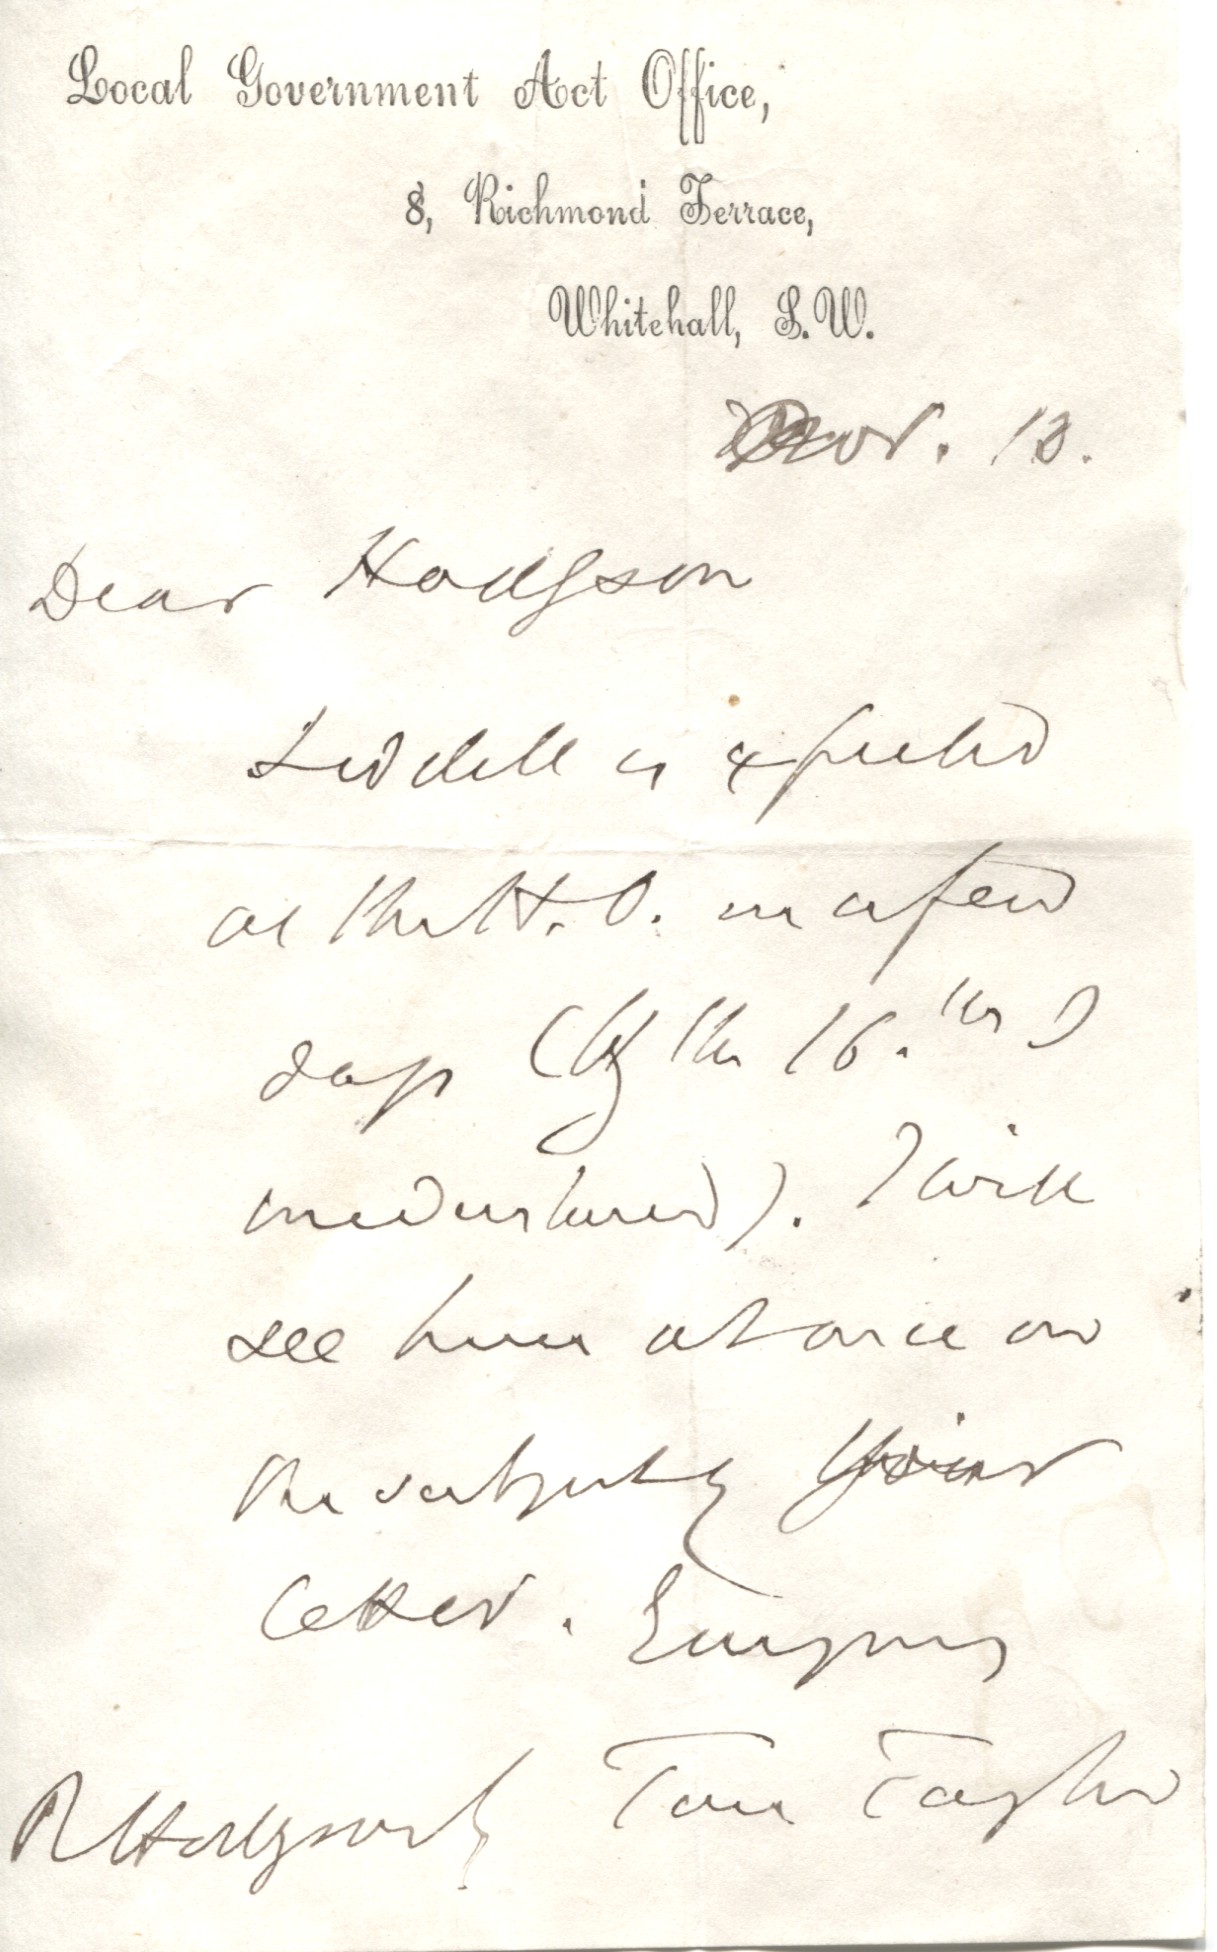 Local Government Act Office,
8, Richmond Terrace,
Whitehall, S.W.
Nov. 13.
Dear Hodgson
Liddell is expected
at the H. O. in a few
days (by the 16.th I
understand). I will
see him at once on
the subject of your
letter. Ever yours
Tom Taylor
R Hodgson